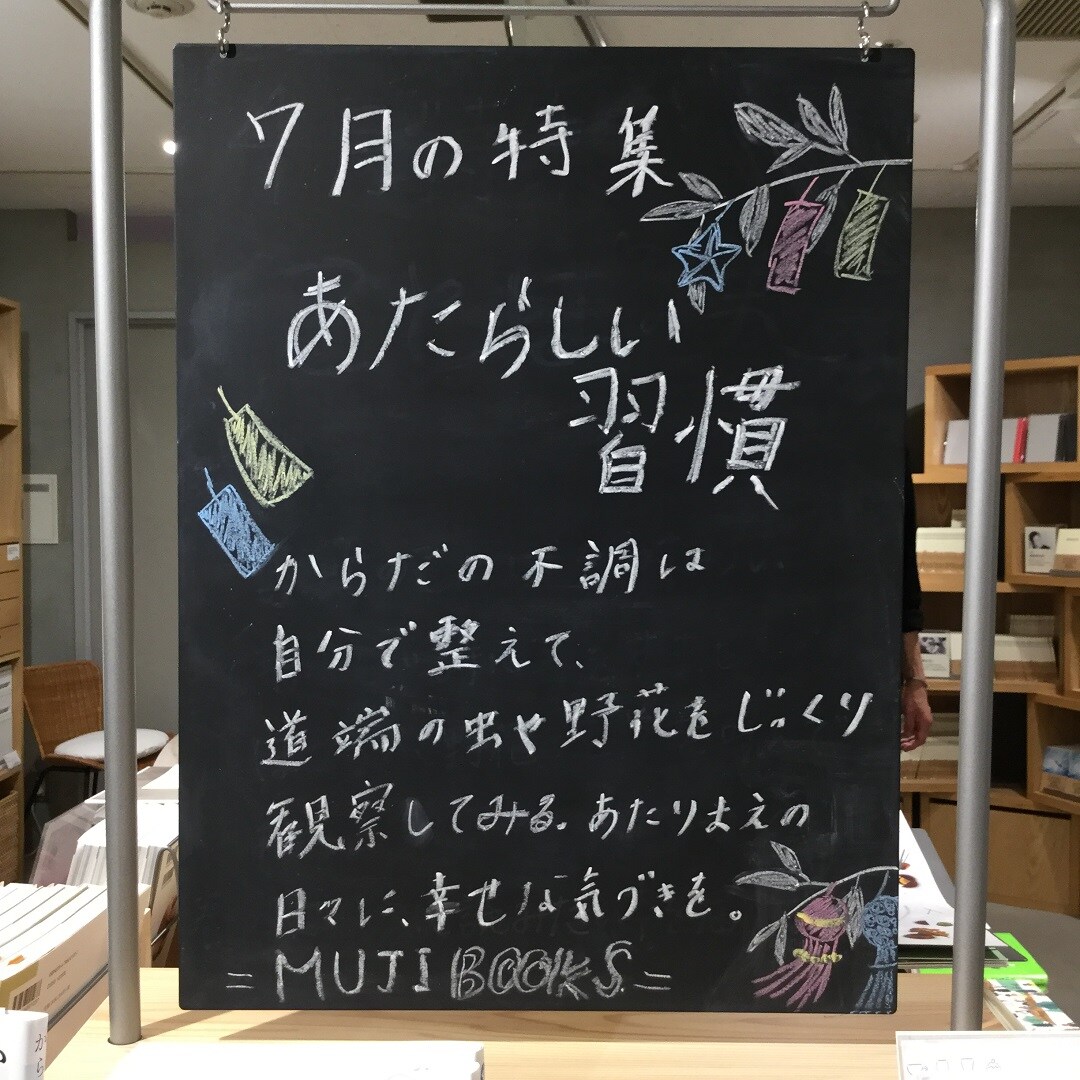 7月の特集
あたらしい
習慣
からだの不調は
自分で整えて、
道端の虫や野花をじっくり
観察してみる。あたりまえの
日々に、幸せな気づきを。
=MUJI BOOKS=